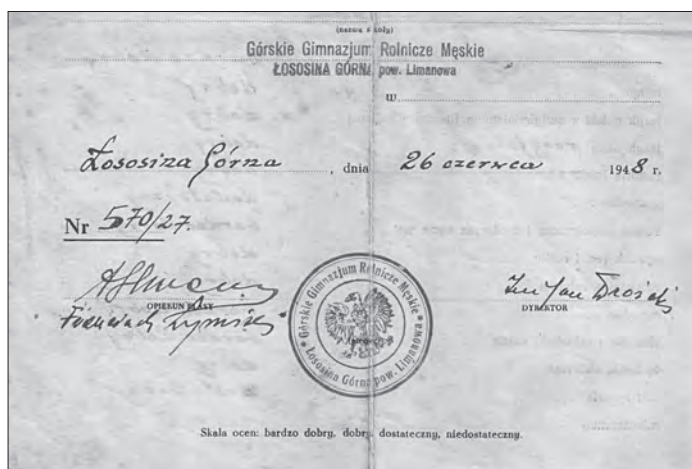 (nazwa szkoły)
Górskie Gimnazjum Rolnicze Męskie
ŁOSOSINA GÓRNA pow. Limanowa
w
Łososina Górna, dnia 26 czerwca 1948 r.
Nr 570/27.
OPIEKUN KLASY
DYREKTOR
Inż Jan Drożak
* Górskie Gimnazjum Rolnicze Męskie * Łososina Górna pow. Limanowa
Skala ocen: bardzo dobry, dobry, dostateczny, niedostateczny.